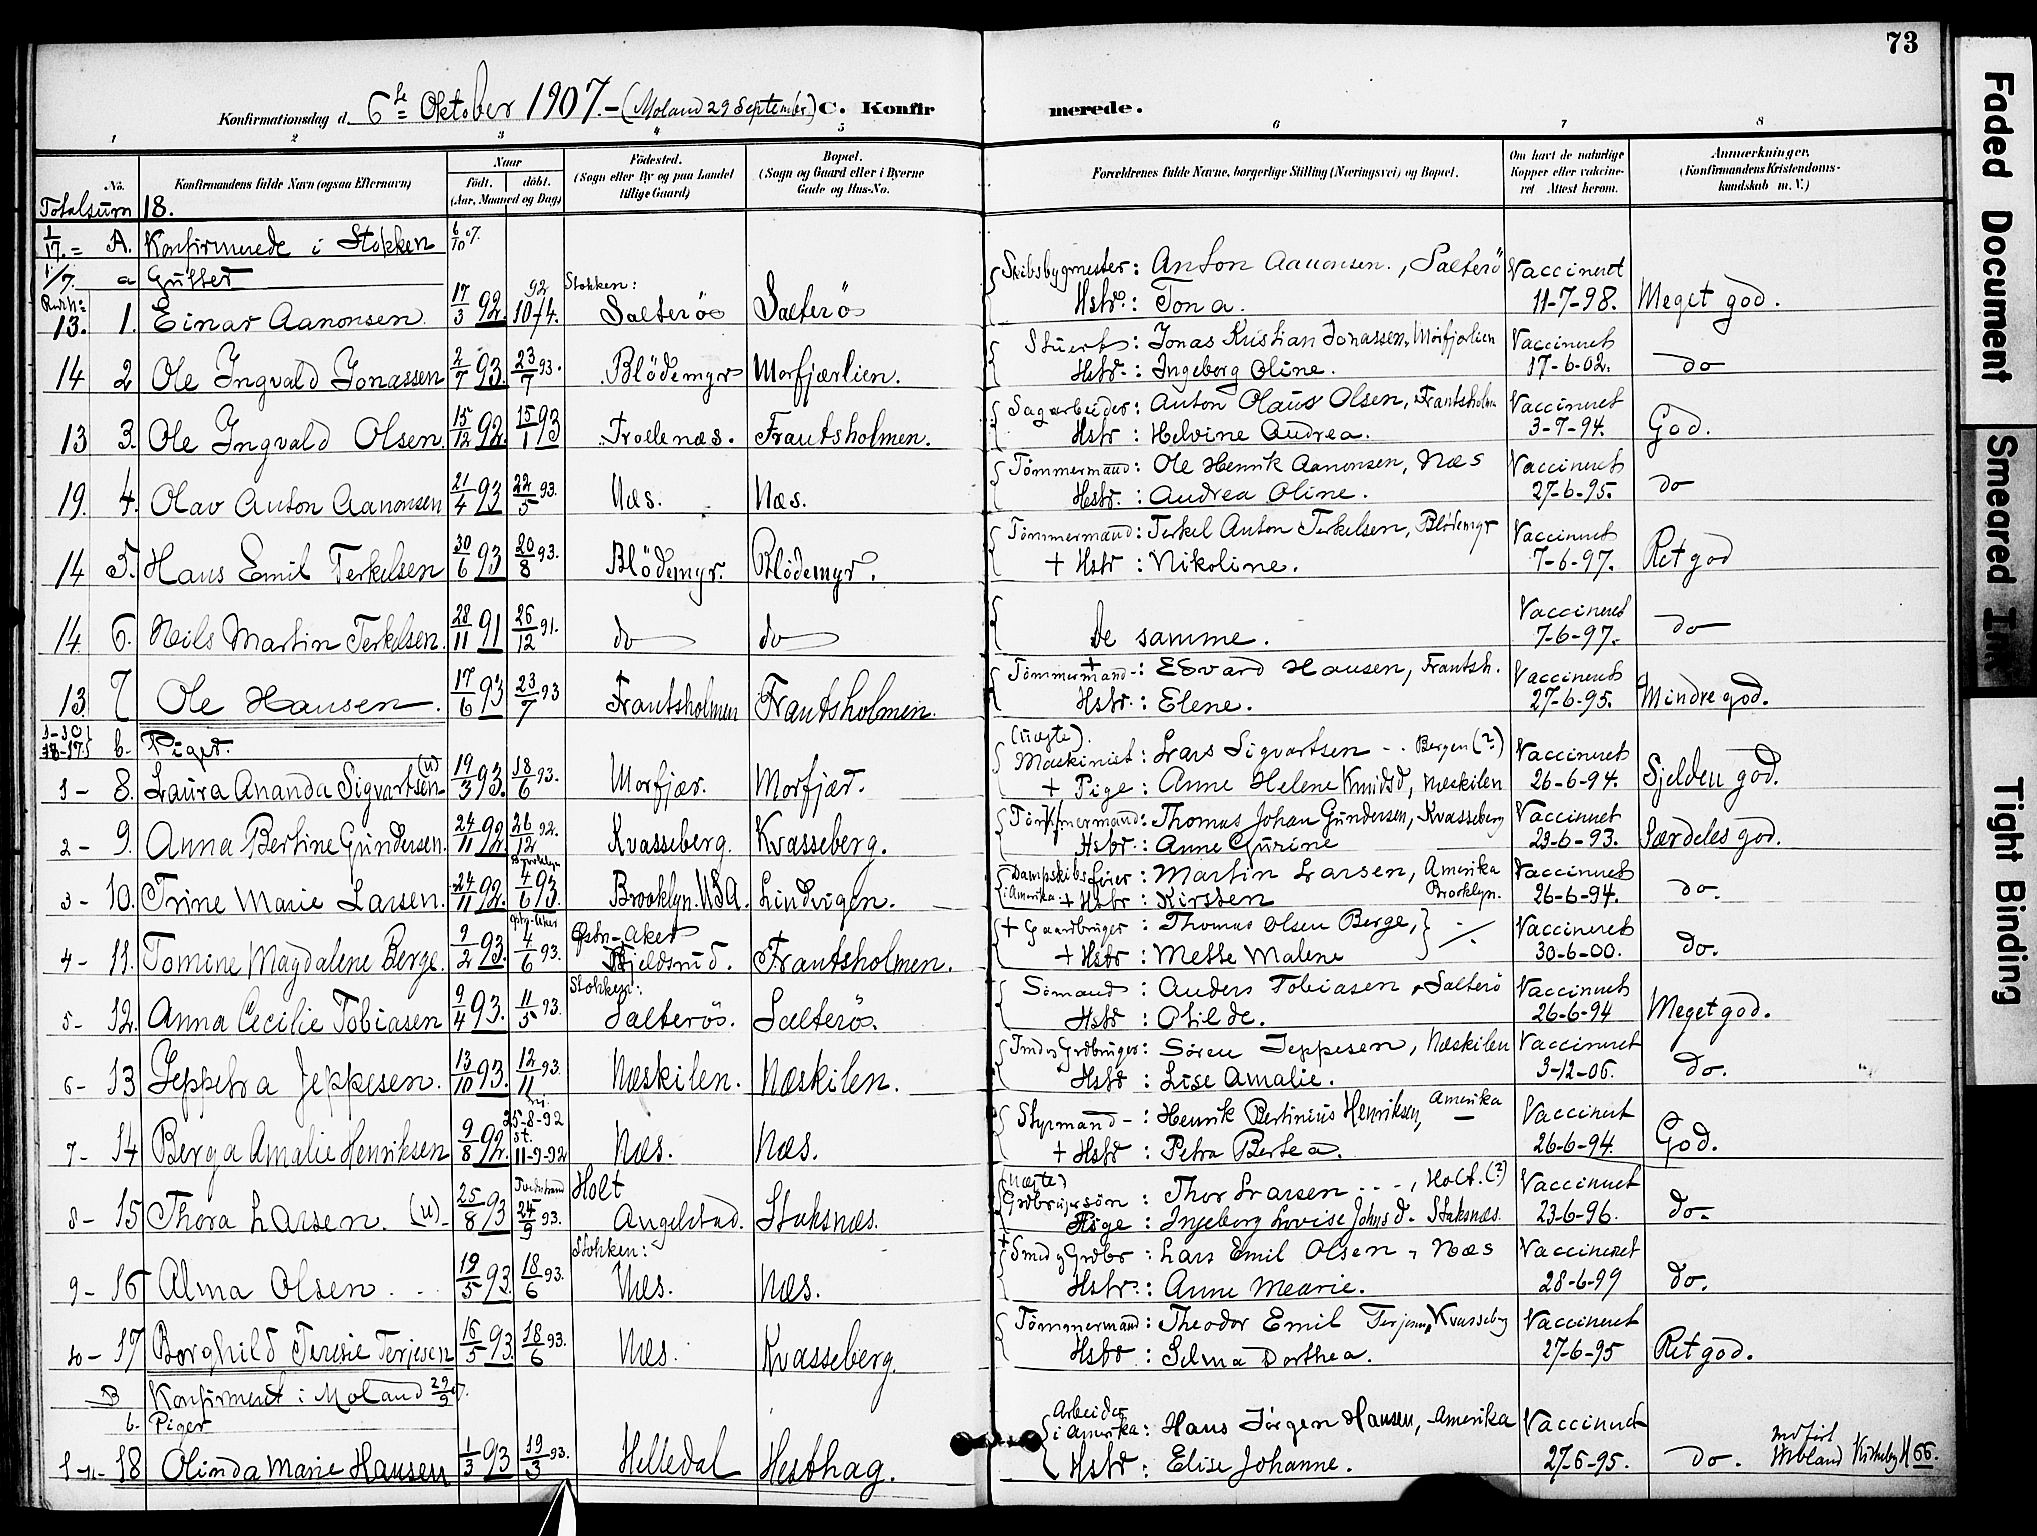 73
Konfirmationsdag d. 6te Oktober 1907.- (Moland 29 September.) C. Konfir merede.
1 2 3 4 5 6 7 8
No. Konfirmandens fulde Navn (ogsaa Efternavn) Naar født. døbt. (Aar, Maaned og Dag) Fødested. (Sogn eller By og paa Landet tillige Gaard) Bopæl. (Sogn og Gaard eller i Byerne Gade og Hus-No. Forældrenes fulde Navne, borgerlige Stilling (Næringsvei) og Bopæl. Om havt de naturlige Kopper eller vaccineret Attest herom. Anmærkninger. (Konfirmandens Kristendomskundskab m. V.)
Totalsum 18.
1/17.= A. Konfirmerede i Stokken 6/10 07.
1/7. a Gutter
13. 1. Einar Aanonsen. 17/3 92. 92 10-/4. Stokken: Salterö Salterö { Skibsbygmester: Anton Aanonsen., Salterö Hstr.: Tona. Vaccineret 11-7-98. Meget god.
14 2 Ole Ingvald Jonassen 2/7 93. 23/7 93. Blödemyr Morfjærlien. { Stuert: Jonas Kristian Jonassen, Morfjærlien Hstr.: Ingeborg Oline. Vaccineret 17-6-02. do
13 3. Ole Ingvald Olsen. 15/12 92. 15/1 93 Troldenæs. Frantsholmen. { Sagarbeider: Anton Olaus Olsen, Frantsholm Hstr: Helvine Andrea. Vaccineret 3-7-94. God.
19. 4. Olav Anton Aanonsen 21/4 93 22/5 93. Næs. Næs. { Tömmermand: Ole Henrik Aanonsen, Næs Hstr.: Andrea Oline. Vaccineret 27-6-95. do
14 5. Hans Emil Terkelsen 30/6 93 20/8 93. Blödemyr. Blödemyr. { Tömmermand: Terkel Anton Terkelsen, Blödemyr + Hstr: Nikoline. Vaccineret 7-6-97. Ret god
14 6. Nils Martin Terkelsen. 28/11 91 26/12 91. do do { De samme. Vaccineret 7-6-97. do
13. 7 Ole Hansen. 17/6 93 23/7 93 Frantsholmen Frantsholmen. { + Tömmermand: Edvard Hansen, Frantsh. Hstr.: Elene. Vaccineret 27-6-95. Mindre god.
1-10 } 8-17 } b. Piger.
1- 8. Laura Ananda Sigvartsen (u) 19/3 93. 18/6 93. Morfjær. Morfjær. { (uægte). Maskinist: Lars Sigvartsen - . Bergen (?) + Pige: Anne Helene Knudsd, Næskilen Vaccineret 26-6-94. Sjelden god.
2- 9. Anna Bertine Gundersen. 24/11 92. 26/12 92. Kvasseberg. Kvasseberg. { Tömmermand: Thomas Johan Gundersen, Kvasseberg Hstr.: Anne Gurine Vaccineret 23-6-93. Særdeles god.
3- 10. Trine Marie Larsen. 24/11 92. Brooklyn 4/6 93. Brooklyn. USA. Lindvigen. { Dampskibsfører: Martin Larsen, Amerika i Amerika + Hstr: Kirsten Brooklyn. Vaccineret 26-6-94. do.
4- 11. Tomine Magdalene Berge. 9/2 93. 4/6 93. Østr-Aker Fjeldsrud. Frantsholmen. { + Gaardbruger: Thomas Olsen Berge, + Hstr: Mette Malene } Vaccineret 30-6-00. do.
5- 12. Anna Cecilie Tobiasen 9/4 93. 11/5 93. Stokken: Salterös. Salterös. { Sömand: Anders Tobiasen, Salterö Hstr: Otilde. Vaccineret 26-6-94 Meget god.
6- 13 Jeppetra Jeppesen. 13/10 93. 12/11 93. Næskilen. Næskilen. { Inders Grdbruger: Sören Jeppesen, Næskilen Hstr: Lise Amalie. Vaccineret 3-12-06. do.
7- 14 Berga Amalie Henriksen 9/8 92. 25-8-92 st. 11-9-92 Næs. Næs. { Styrmand -: Henrik Bertinius Henriksen, Amerika + Hstr: Petra Bertea. Vaccineret 26-6-94. God.
8- 15 Thora Larsen. (u) 25/8 93 Tvedestrand 24/9 93. Holt Angelstad. Staksnæs. { (uægte) Grdbrugersön: Thor Larsen . . . , Holt. (?) Pige: Ingeborg Lovise Johnsd. Staksnæs. Vaccineret 23-6-96. do.
9- 16 Alma Olsen. 19/5 93. 18/6 93. Stokken: Næs. Næs. { + Smed og Grdbr: Lars Emil Olsen, Næs Hstr.: Anne Mearie. Vaccineret 28-6-99 do.
10- 17 Borghild Teresie Terjesen 16/5 93. 18/6 93. Næs. Kvasseberg. { Tömmermand: Theodor Emil Terjesen, Kvasseberg Hstr: Selma Dorthea. Vaccineret 27-6-95 Ret god.
B Konfirmeret i Moland 29/9 07.
b. Piger
1- 18 Olinda Marie Hansen 1/3 93 19/3 93. Helledal Hesthag. { Arbeider i Amerika: Hans Jörgen Hansen, Amerika Hstr: Elise Johanne. Vaccineret 27-6-95. do. indført Moland Kirkebog 66.
Faded Document
Smeared Ink
Tight Binding